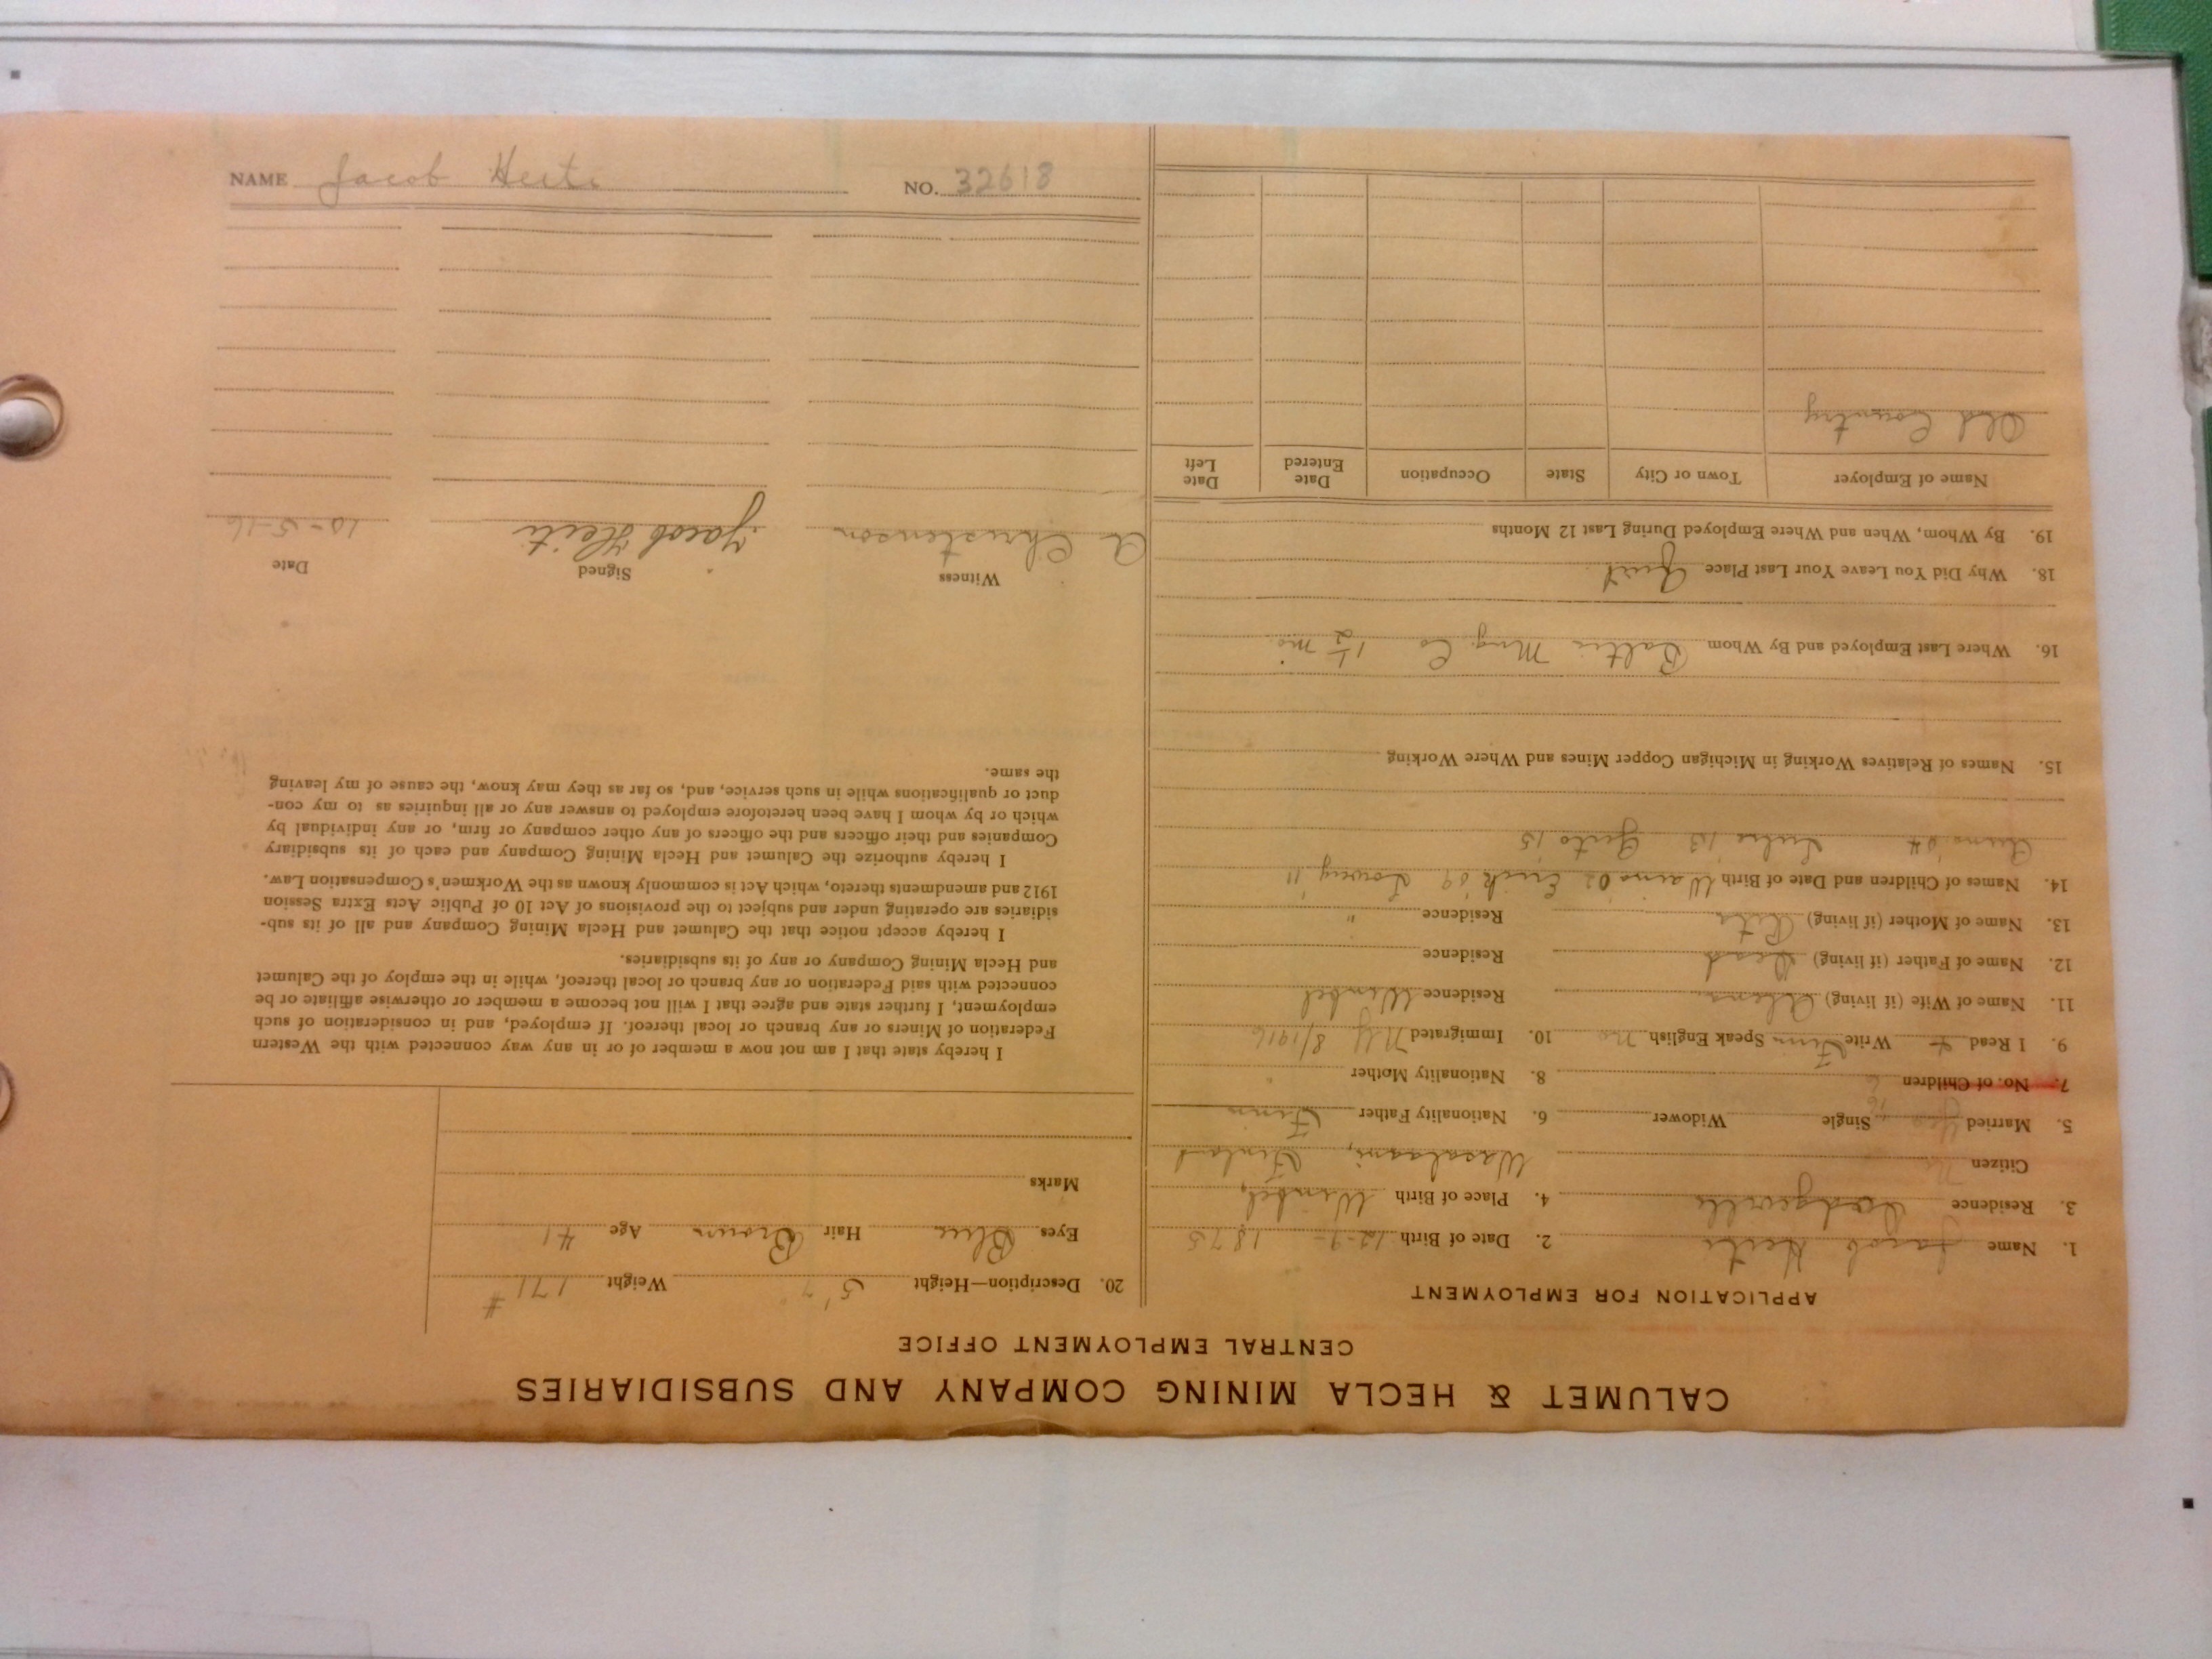 CALUMET & HECLA MINING COMPANY AND SUBSIDIARIES
CENTRAL EMPLOYMENT OFFICE
APPLICATION FOR EMPLOYMENT
1. Name Jacob Heiti 2. Date of Birth 12-9- 1875
3. Residence Dodgeville 4. Place of Birth
Citizen No Finland
5. Married Yes Single Widower 6. Nationality Father Finn
7. No. of Children 6 8. Nationality Mother
9. I Read & Write Finn Speak English no 10. Immigrated NY 8/1916
11. Name of Wife (if living) Residence
12. Name of Father (if living) Dead Residence
13. Name of Mother (if living) Residence "
14. Names of Children and Date of Birth Waino '02 Erick '09 '11
'04 '13 '15
15. Names of Relatives Working in Michigan Copper Mines and Where Working
16. Where Last Employed and By Whom Baltic Mng. Co 1½ mo.
18. Why Did You Leave Your Last Place Quit
19. By Whom, When and Where Employed During Last 12 Months
Name of Employer Town or City State Occupation Date Entered Date Left
Old Country
20. Description—Height 5' 7 Weight 171 #
Eyes Blue Hair Brown Age 41
Marks
I hereby state that I am not now a member of or in any way connected with the Western
Federation of Miners or any branch or local thereof. If employed, and in consideration of such
employment, I further state and agree that I will not become a member or otherwise affiliate or be
connected with said Federation or any branch or local thereof, while in the employ of the Calumet
and Hecla Mining Company or any of its subsidiaries.
I hereby accept notice that the Calumet and Hecla Mining Company and all of its sub-
sidiaries are operating under and subject to the provisions of Act 10 of Public Acts Extra Session
1912 and amendments thereto, which Act is commonly known as the Workmen's Compensation Law.
I hereby authorize the Calumet and Hecla Mining Company and each of its subsidiary
Companies and their officers and the officers of any other company or firm, or any individual by
which or by whom I have been heretofore employed to answer any or all inquiries as to my con-
duct or qualifications while in such service, and, so far as they may know, the cause of my leaving
the same.
Witness Signed Date
A Christenson Jacob Heiti 10-5-16
NAME Jacob Heiti NO. 32618